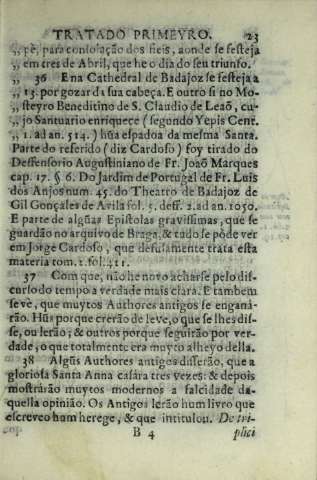 TRATADO PRIMEYRO. 23
„ pè, para consolação dos fieis, aonde se festeja
„ em tres de Abril, que he o dia do seu triunfo.
„ 36 E na Cathedral de Badajoz se festeja a
„ 13. por gozar da sua cabeça. E outro si no Mo-
„ steyro Beneditino de S. Claudio de Leaõ, cu-
„ jo Santuario enriquece (segundo Yepis Cent.
„ 1. ad an. 514.) hũa espadoa da mesma Santa.
Parte do referido (diz Cardoso) foy tirado do
Deffensorio Augustiniano de Fr. Joaõ Marques
cap. 17. § 6. Do Jardim de Portugal de Fr. Luis
dos Anjos num. 45. do Theatro de Badajoz de
Gil Gonçales de Avila fol. 5. deff. 2. ad an. 1050.
E parte de algũas Epistolas gravissimas, que se
guardão no arquivo de Braga, & tudo se pòde ver
em Jorge Cardoso, que defusamente trata esta
materia tom. 2. fol. 411.
37 Com que, não he novo acharse pelo dis-
curso do tempo a verdade mais clara. E tambem
se vè, que muytos Authores antigos se engana-
rão. Hũs porque crerão de leve, o que se lhes dis-
se, ou lerão; & outros porque seguirão por ver-
dade, o que totalmente era muyto alheyo della.
38 Algũs Authores antigos disserão, que a
gloriosa Santa Anna casára tres vezes: & depois
mostrárão muytos modernos a falcidade da-
quella opinião. Os Antigos lerão hum livro que
escreveo hum herege, & que intitulou. De tri-
B 4 plici